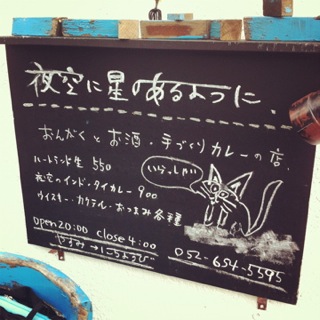 夜空に星のあるように.
おんがくとお酒・手づくりカレーの店.
ハートランド生 550
いらっしゃい
夜空のインド・タイカレー 900
ウイスキー・カクテル・おつまみ各種
open 20:00 close 4:00
やすみ→にちようび
052-654-5595